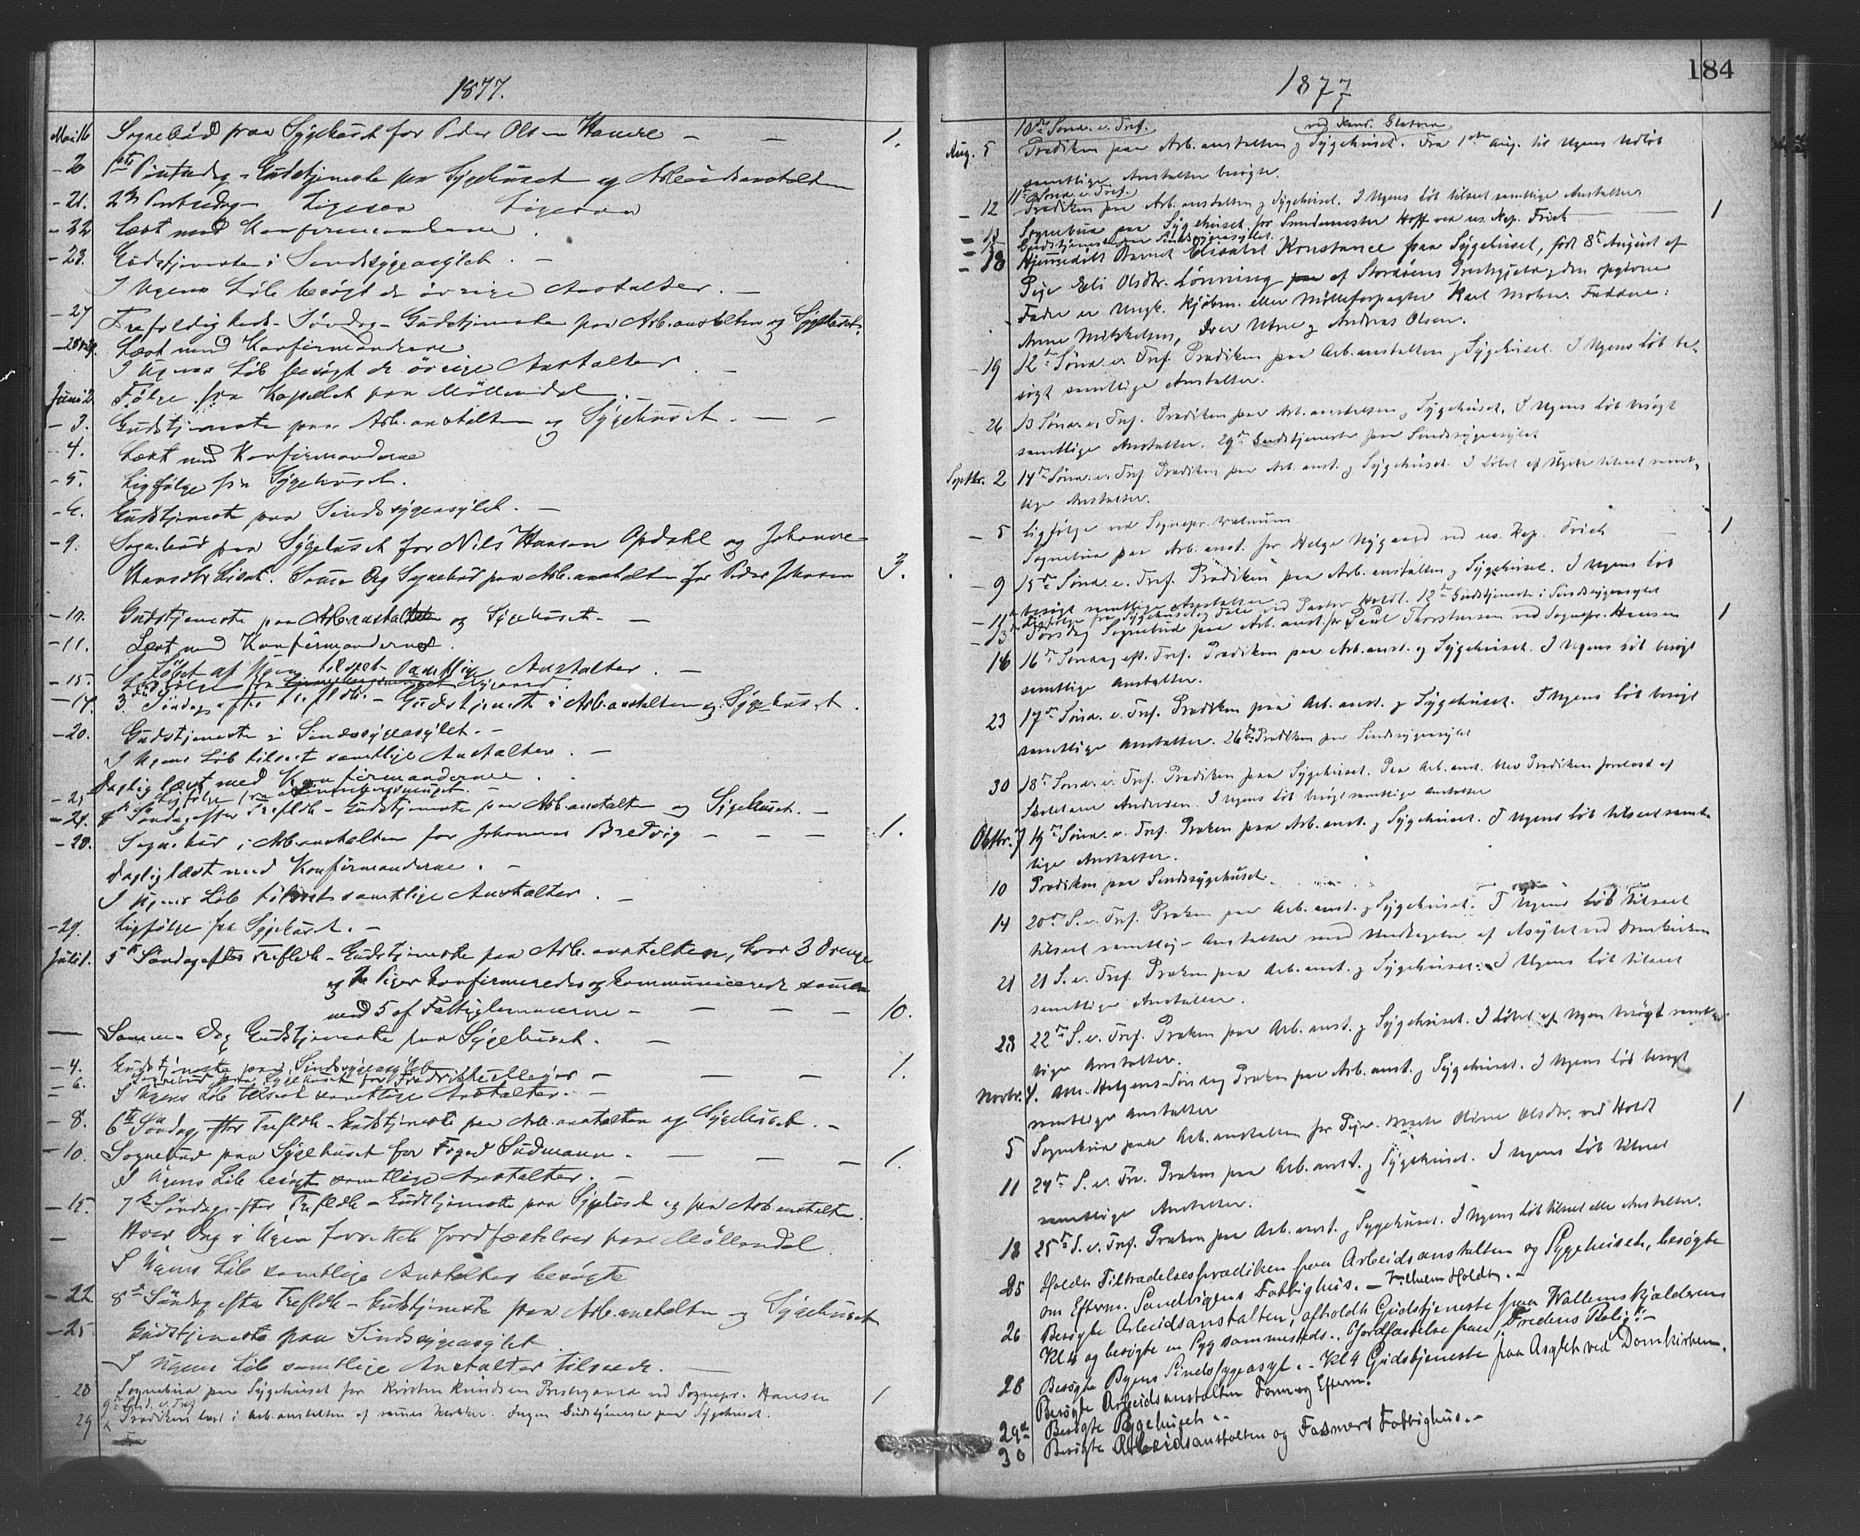 1877.
Mai 16 Sognebud paa Sygehuset for Peder Olsen 1.
- 20 1ste Pintsedag - Gudstjeneste paa Sygehuset og Arbeidsanstalten
- 21. 2den Pintsedag - Ligesaa Ligesaa
- 22 Læst med Konfirmanderne.
- 23. Gudstjeneste i Sindssygeasylet. -
I Ugens Løb besøgt de øvrige Anstalter. -
- 27 Trefoldigheds-Søndag - Gudstjeneste paa Arb.anstalten og Sygehuset.
- 28 Læst med Konfirmanderne
I Ugens Løb besøgt de øvrige Anstalter
Juni 2. Følge fra Kapellet paa Møllendal. -
- 3. Gudstjeneste paa Arb.anstalten og Sygehuset. - -
- 4. Læst med Konfirmanderne
- 5. Ligfølge fra Sygehuset.
- 6. Gudstjeneste paa Sindssygeasylet. -
- 9. Sognebud paa Sygehuset for Nils Hansen Opdahl og Johanne
Hansdtr Samme Dag Sognebud paa Arb.anstalten for Peder 3.
- 10. Gudstjeneste paa Arb.anstalten og Sygehuset. -
- 11. Læst med Konfirmanderne.
I Løbet af Ugen tilseet samtlige Anstalter. -
- 15. Ligfølge fra
- 17. 3die Søndag efter Trefldh. - Gudstjeneste i Arb.anstalten og Sygehuset.
- 20. Gudstjeneste i Sindssygeasylet. -
I Ugens Løb tilseet samtlige Anstalter. -
Daglig læst med Konfirmanderne.
- 21 Ligfølge fra
- 24. 4de Søndag efter Trefldh - Gudstjeneste paa Arb.anstalten og Sygehuset. -
- 28. Sognebud i Arb.anstalten for Johannes Bredvig - - - 1.
Daglig læst med Konfirmanderne. -
I Ugens Løb tilseet samtlige Anstalter. -
- 29. Ligfølge fra Sygehuset. -
Juli 1. 5te Søndag efter Trefldh - Gudstjeneste paa Arb.anstalten, hvor 3 Drenge
og 2 Piger konfirmeredes og kommunicerede sammen
med 5 af Fattiglemmerne - - - - 10.
Samme Dag Gudstjeneste paa Sygehuset. -
- 4. Gudstjeneste paa Sindssygeasylet
- 6. Sognebud paa Sygehuset for Fredrikke Meyer - - - 1.
- I Ugens Løb tilseet samtlige Anstalter. -
- 8. 6te Søndag efter Trefldh - Gudstjeneste paa Arb.anstalten og Sygehuset. -
- 10. Sognebud paa Sygehuset for Foged Sudmann - - - 1.
I Ugens Løb besøgt samtlige Anstalter. -
- 15. 7de Søndag efter Trefldh - Gudstjeneste paa Sygehuset og paa Arb.anstalten.
- Hver Dag i Ugen Jordfæstelser paa Møllendal.
I Ugens Løb samtlige Anstalter besøgte
- 22 8de Søndag efter Trefldh - Gudstjeneste paa Arb.anstalten og Sygehuset
- 25. Gudstjeneste paa Sindssygeasylet.
I Ugens Løb samtlige Anstalter tilseede. -
- 28 Sognebud paa Sygehuset for Kirsten Knudsen ved Sognepr. Hansen 1
9de Sønd. e. Tref
29 Prædiken læst i Arb.anstalten af sammes Ingen Gudstjeneste paa Sygehuset.
184
1877
10de Sønd. e. Tref. ved
Aug. 5 Prædiken paa Arb.anstalten og Sygehuset. Fra 1ste Aug. til Ugens Udløb
samtlige Anstalter besøgte.
11te Sønd. e. Tref.
- 12 Prædiken paa Arb.anstalten og Sygehuset. I Ugens Løb tilseet samtlige Anstalter
- Sognebud paa Sygehuset for Hoff ved res. Kap. Frich - 1
- Gudstjeneste paa Sindssygeasylet.
- 18 Hjemmedøbt Barnet Elisabet Konstance paa Sygehuset, født 8de August af
Pige Eli Olsdtr. Lønning af Storøens Præstegjeld, den opgivne
Fader er Ungk. Kjøbm. eller Mølleforpagter Karl Mohn. Faddere:
Anne Mikkelsen, Iver Utne og Andreas Olsen.
- 19 12te Sønd. e. Tref. Prædiken paa Arb.anstalten og Sygehuset. I Ugens Løb be-
søgt samtlige Anstalter.
26 13 Sønd. e. Tref. Prædiken paa Arb.anstalten og Sygehuset. I Ugens Løb besøgt
samtlige Anstalter. 29de Gudstjeneste paa Sindssygeasylet
Septbr. 2 14de Sønd. e. Tref Prædiken paa Arb.anst. og Sygehuset. I Løbet af Ugen tilseet samt-
lige Anstalter.
- 5 Ligfølge ved Sognepr.
Sognebud paa Arb.anst. for Helge Nygaard ved res. Kap. Frich - 1
- 9 15de Sønd. e. Tref. Prædiken paa Arb.anstalten og Sygehuset. I Ugens Løb
besøgt samtlige Anstalter
- 11 Ligfølge fra Sygehuset og Tale ved Pastor Holdt. 12te Gudstjeneste i Sindssygeasylet
- 13 Torsdag Sognebud paa Arb.anst. for Paul Thorstensen ved Sognepr. Hansen 1
16 16de Søndag eft. Tref. Prædiken paa Arb.anst. og Sygehuset. I Ugens Løb besøgt
samtlige Anstalter.
23 17de Sønd. e. Tref. Prædiken paa Arb.anst. og Sygehuset. I Ugens Løb besøgt
samtlige Anstalter. 26de Prædiken paa Sindssygeasylet
30 18de Sønd. e. Tref. Prædiken paa Sygehuset. Paa Arb.anst. blev Prædiken forelæst af
Andersen. I Ugens Løb besøgt samtlige Anstalter
Oktbr. 7 19de Sønd. e. Tref. Præken paa Arb.anst. og Sygehuset. I Ugens Løb tilseet samt-
lige Anstalter.
10 Prædiken paa Sindssygehuset.
14 20de S. e. Tref. Præken paa Arb.anst. og Sygehuset. I Ugens Løb tilseet
tilseet samtlige Anstalter med Undtagelse af Asylet ved Domkirken
21 21 S. e. Tref. Præken paa Arb.anst. og Sygehuset. I Ugens Løb tilseet
samtlige Anstalter.
28 22de S. e. Tref. Præken paa Arb.anst. og Sygehuset. I Løbet af Ugen besøgt samt-
lige Anstalter.
Novbr. 4. Alle Helgens-Søndag Præken paa Arb.anst. og Sygehuset. I Ugens Løb besøgt
samtlige Anstalter
5 Sognebud paa Arb.anstalten for Pige Oline Olsdtr. ved Holdt 1
11 24de S. e. Tre. Præken paa Arb.anst. og Sygehuset. I Ugens Løb tilseet
samtlige Anstalter.
18 25de S. e. Tref. Præken paa Arb.anst. og Sygehuset. I Ugens Løb tilseet alle Anstalter.
25 Holdt Tiltrædelsesprædiken paa Arbeidsanstalten og Sygehuset, besøgte
om Efterm. Sandvigens Fattighus. - Vilhelm Holdt. -
26 Besøgte Arbeidsanstalten, afholdt Gudstjeneste paa
Kl 4 og besøgte en Syg sammesteds. Jordfæstelse paa Fredens Bolig. -
28 Besøgte Byens Sindssygeasyl. - Kl 4 Gudstjeneste paa Asylet ved Domkirken.
Besøgte Arbeidsanstalten Form. og Efterm.
29de Besøgte Sygehuset. -
30 Besøgte Arbeidsanstalten og Fattighus. -